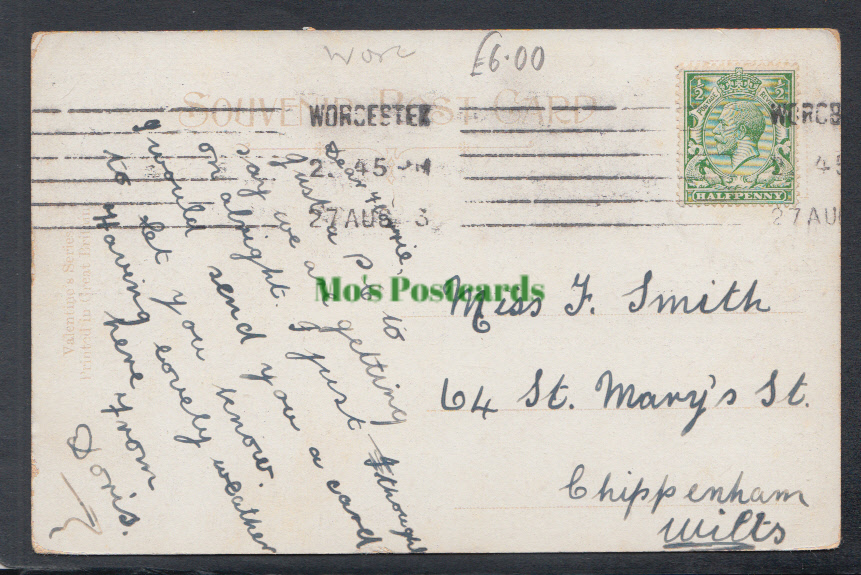 Worc
£6.00
SOUVENIR POST CARD
WORCESTER
2. 45 PM
27 AUG 3
WORCE
45
27 AU
½ ½
HALFPENNY
Valentine's Series
Printed in Great Britain
Dear
Just a P.C. to
say we are getting
on alright. I just thought
I would send you a card
to let you know.
Having lovely weather
here from
Doris.
Miss F. Smith
64 St. Mary's St.
Chippenham
Wilts
Mo's Postcards